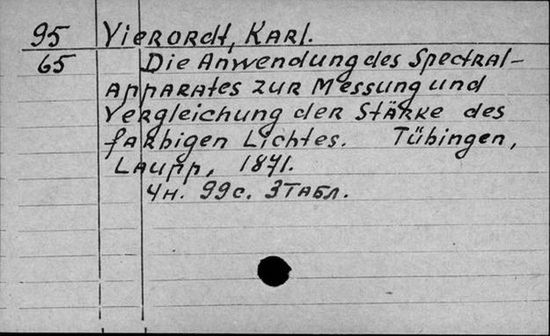 95 Vierordt, Karl.
65 Die Anwendung des Spectral-
apparates zur Messung und
Vergleichung der Stärke des
farbigen Lichtes. Tübingen,
Laupp, 1871.
4н. 99с. 3 табл.